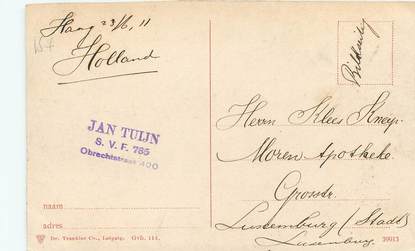 Haag 23/6, 11
Holland
Bildseitig
JAN TUIJN
S. V. F. 785
Obrechtstraat 400
Herrn Klees Kneip
Moren Apotheke
Grosstr.
Luxemburg (Stadt)
Luxemburg
naam
adres
Dr. Trenkler Co., Leipzig. Gvh. 114.
39013